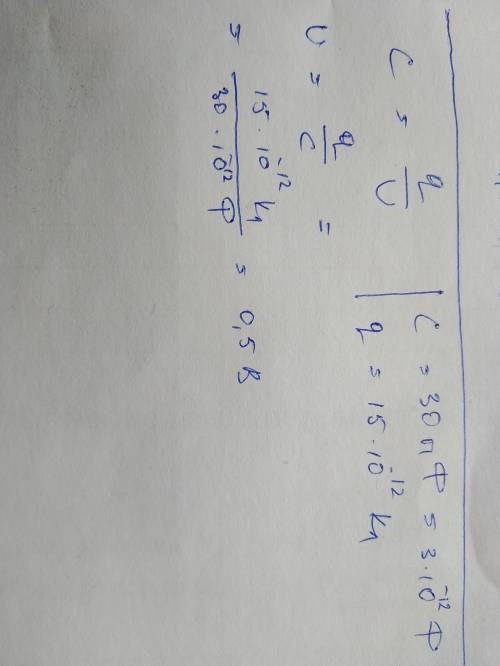 C = q/U | C = 30 пФ = 3·10⁻¹² Ф
| q = 15·10⁻¹² Кл
U = q/C =
= 15·10⁻¹² Кл / 30·10⁻¹² Ф = 0,5 В